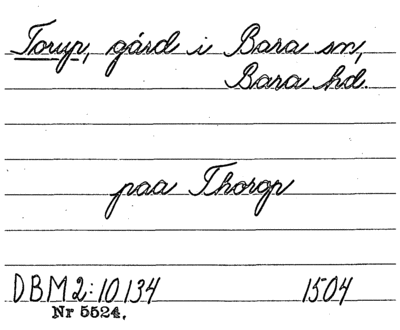 Torup, gård i Bara sn,
Bara hd.
paa Thorgp
DBM2:10134 1504
Nr 5524.